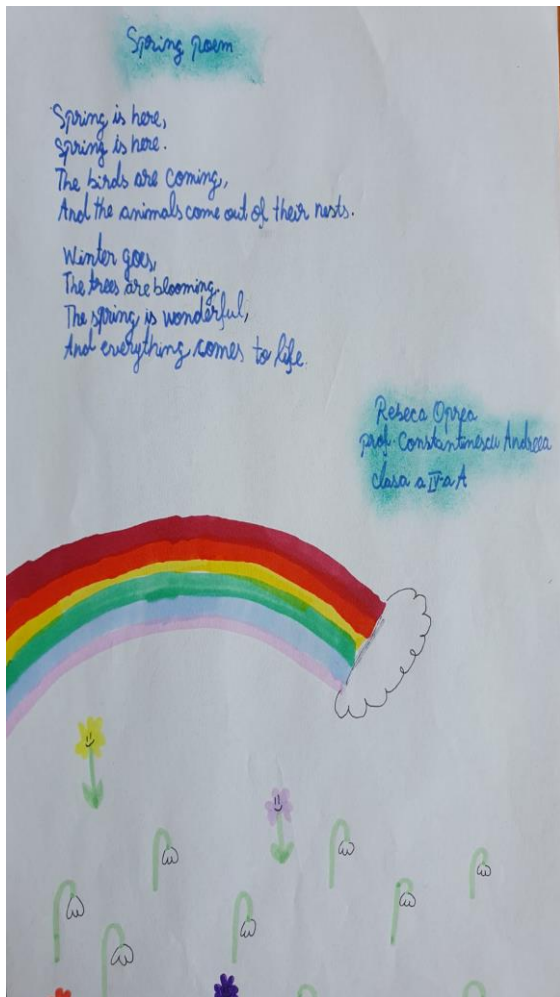 Spring poem
Spring is here,
Spring is here.
The birds are coming,
And the animals come out of their nests.
Winter goes,
The trees are blooming.
The spring is wonderful,
And everything comes to life.
Rebeca Oprea
prof. Constantinescu Andreea
clasa a IV-a A